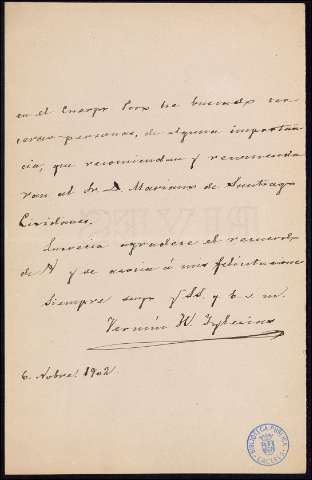 en el Cuerpo Pero he buscado
personas, de alguna importan-
cia, que recomiendan y recomenda
ran al Sr. D. Mariano de Santiago
Cividanes.
Lucrecia agradece el recuerdo
de V y se asocia á mis felicitaciones
Siempre suyo y SS. q. b. s. m.
Fermín H. Iglesias
6. Nobre. 1902.
BIBLIOTECA PUBLICA
CACERES